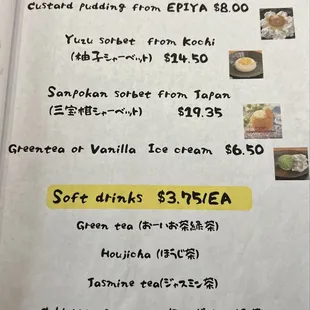 Custard pudding from EPIYA $8.00
Yuzu sorbet from Kochi
(柚子シャーベット) $14.50
Sanpokan sorbet from Japan
(三宝柑シャーベット) $19.35
Greentea or Vanilla Ice cream $6.50
Soft drinks $3.75/EA
Green tea (おーいお茶緑茶)
Houjicha (ほうじ茶)
Jasmine tea(ジャスミン茶)